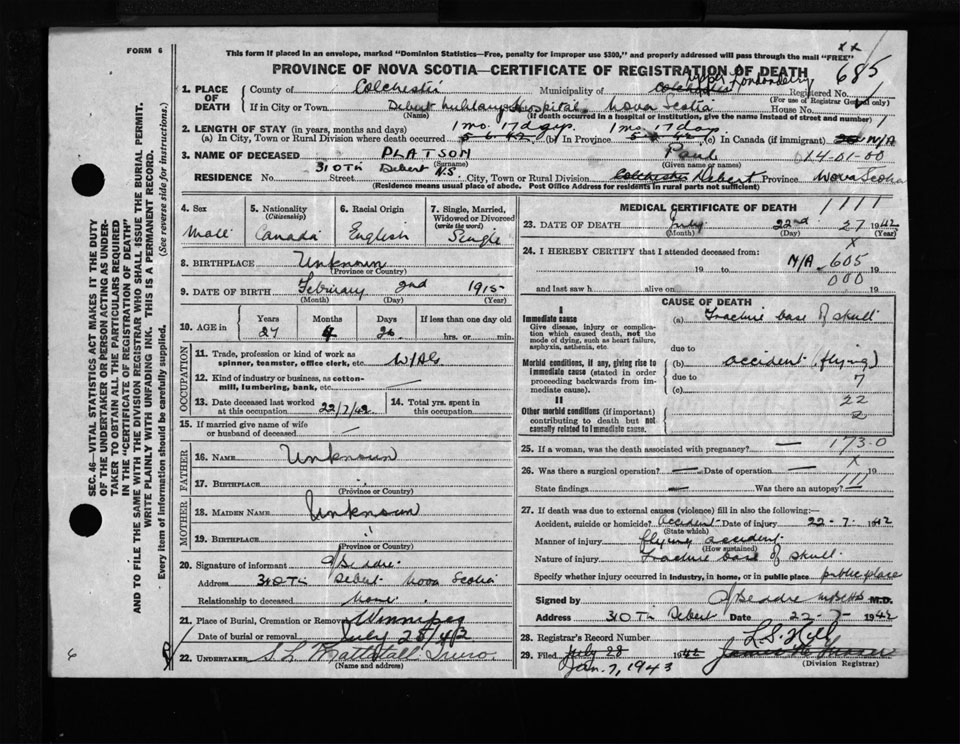 FORM 6
This form if placed in an envelope, marked "Dominion Statistics—Free, penalty for improper use $300," and properly addressed will pass through the mail "FREE"
PROVINCE OF NOVA SCOTIA—CERTIFICATE OF REGISTRATION OF DEATH
685
1. PLACE OF DEATH
County of Colchester
Municipality of Colchester Upper Londonderry
Registered No.
(For use of Registrar General only)
If in City or Town Debert Military Hospital, Nova Scotia House No.
(Name) (If death occurred in a hospital or institution, give the name instead of street and number)
2. LENGTH OF STAY (in years, months and days) 1 mo. 17 days. 1 mo. 17 days.
(a) In City, Town or Rural Division where death occurred 5-6-42 (b) In Province 5-6-42 (c) In Canada (if immigrant) N/A
3. NAME OF DECEASED PLATSON Paul
(Surname) (Given name or names)
14-01-00
RESIDENCE No. 31 OTU Street Debert N.S. City, Town or Rural Division Colchester Debert Province Nova Scotia
(Residence means usual place of abode. Post Office Address for residents in rural parts not sufficient)
4. Sex
Male
5. Nationality (Citizenship)
Canada
6. Racial Origin
English
7. Single, Married, Widowed or Divorced (write the word)
Single
8. BIRTHPLACE Unknown
(Province or Country)
9. DATE OF BIRTH February 2nd 1915
(Month) (Day) (Year)
10. AGE in Years Months Days If less than one day old
27 20 hrs. or min.
OCCUPATION
11. Trade, profession or kind of work as spinner, teamster, office clerk, etc. W/AG
12. Kind of industry or business, as cotton-mill, lumbering, bank, etc.
13. Date deceased last worked at this occupation 22/7/42
14. Total yrs. spent in this occupation
15. If married give name of wife or husband of deceased
FATHER
16. NAME Unknown
17. BIRTHPLACE "
(Province or Country)
MOTHER
18. MAIDEN NAME Unknown
19. BIRTHPLACE "
(Province or Country)
20. Signature of informant
Address 31 OTU Debert Nova Scotia
Relationship to deceased None
21. Place of Burial, Cremation or Removal Winnipeg
Date of burial or removal July 25/42
22. UNDERTAKER Truro.
(Name and address)
MEDICAL CERTIFICATE OF DEATH
1111
23. DATE OF DEATH July 22nd 27 1942
(Month) (Day) (Year)
24. I HEREBY CERTIFY that I attended deceased from:
N/A 605
19 to 19
and last saw h alive on 000 19
CAUSE OF DEATH
I
Immediate cause
Give disease, injury or complication which caused death, not the mode of dying, such as heart failure, asphyxia, asthenia, etc.
(a) Fracture base of skull
due to
Morbid conditions, if any, giving rise to immediate cause (stated in order proceeding backwards from immediate cause).
(b) accident (flying)
due to 7
(c)
II
Other morbid conditions (if important) contributing to death but not causally related to immediate cause.
22
2
25. If a woman, was the death associated with pregnancy? — 173.0
26. Was there a surgical operation? — Date of operation — 19
State findings — Was there an autopsy?
27. If death was due to external causes (violence) fill in also the following:—
Accident, suicide or homicide? Accident Date of injury 22-7-1942
(State which)
Manner of injury flying accident
(How sustained)
Nature of injury Fracture base of skull
Specify whether injury occurred in industry, in home, or in public place public place
Signed by M.D.
Address 31 OTU Debert Date 22-7-1942
28. Registrar's Record Number
29. Filed July 28 1942
Jan. 7, 1943
(Division Registrar)
SEC. 46—VITAL STATISTICS ACT MAKES IT THE DUTY
OF THE UNDERTAKER OR PERSON ACTING AS UNDERTAKER
TO OBTAIN ALL THE PARTICULARS REQUIRED
IN THE "CERTIFICATE OF REGISTRATION OF DEATH"
AND TO FILE THE SAME WITH THE DIVISION REGISTRAR WHO SHALL ISSUE THE BURIAL PERMIT.
WRITE PLAINLY WITH UNFADING INK. THIS IS A PERMANENT RECORD.
Every item of information should be carefully supplied. (See reverse side for instructions.)
6